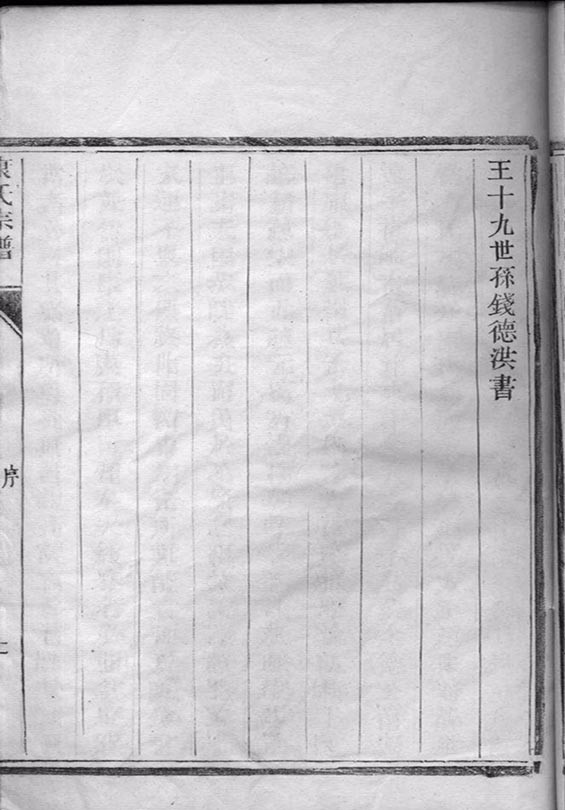 王十九世孫錢德洪書
氏宗譜
序